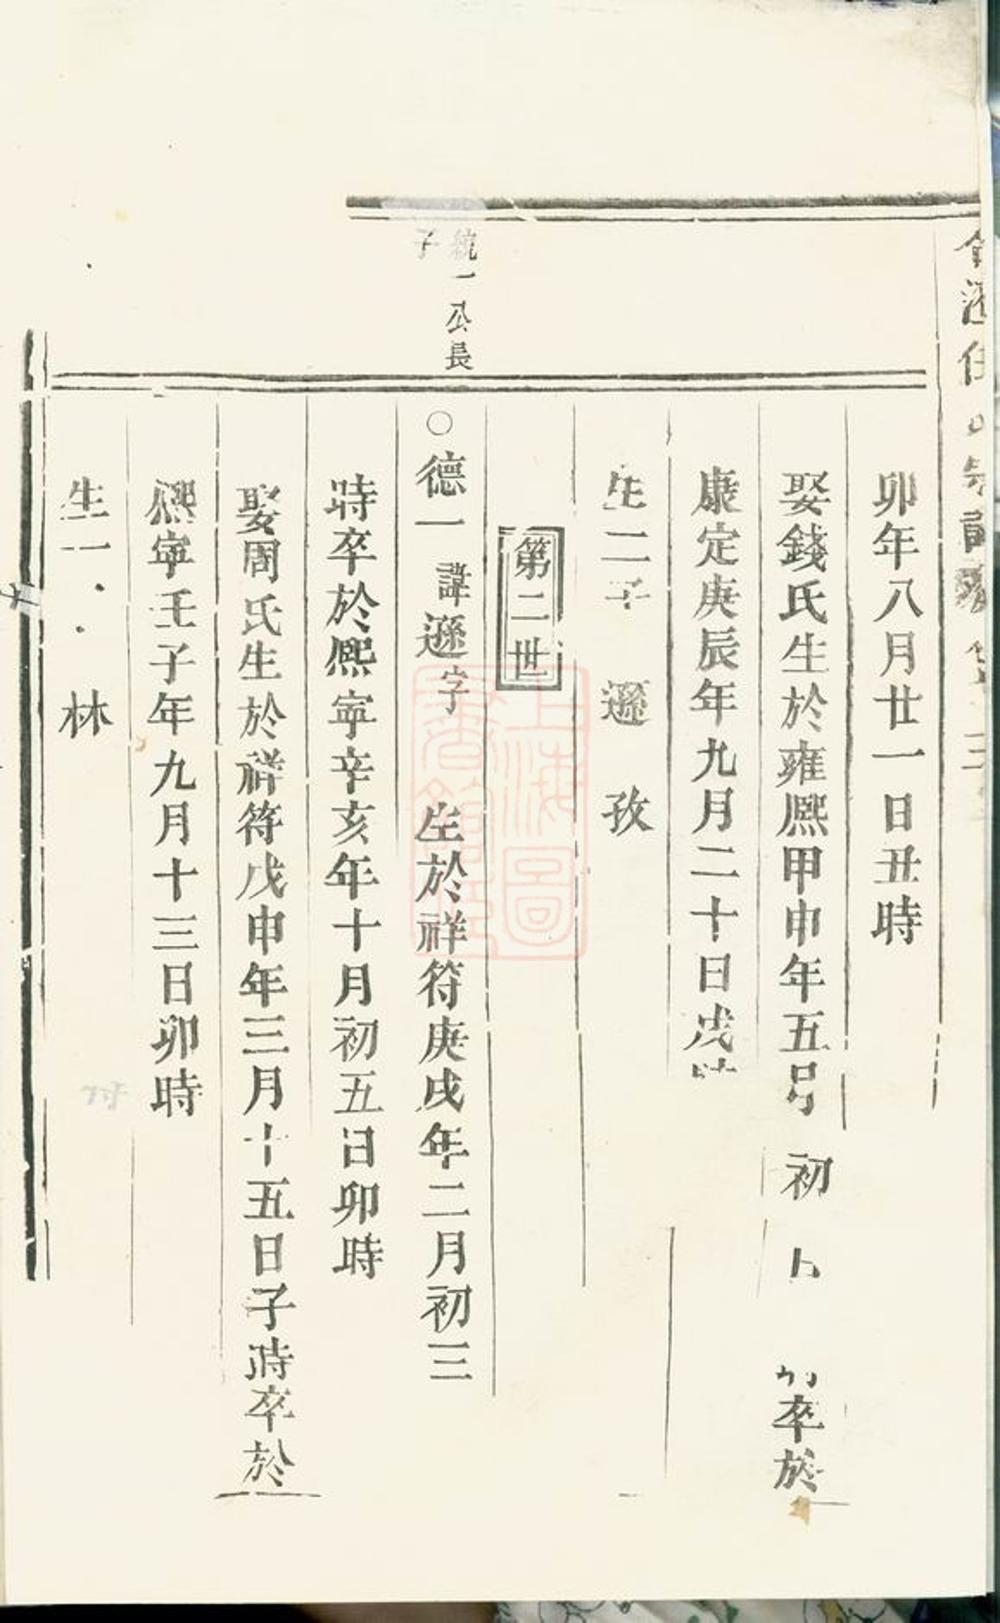 卯年八月廿一日丑時
娶錢氏生於雍熙甲申年五月初 卒於
康定庚辰年九月二十日戌時
生二子 遜 孜
第二世
統一公長子
○德一 諱遜字 生於祥符庚戌年二月初三
時卒於熙寧辛亥年十月初五日卯時
娶周氏生於祥符戊申年三月十五日子時卒於
熙寧壬子年九月十三日卯時
生一 林
上海圖
書館藏